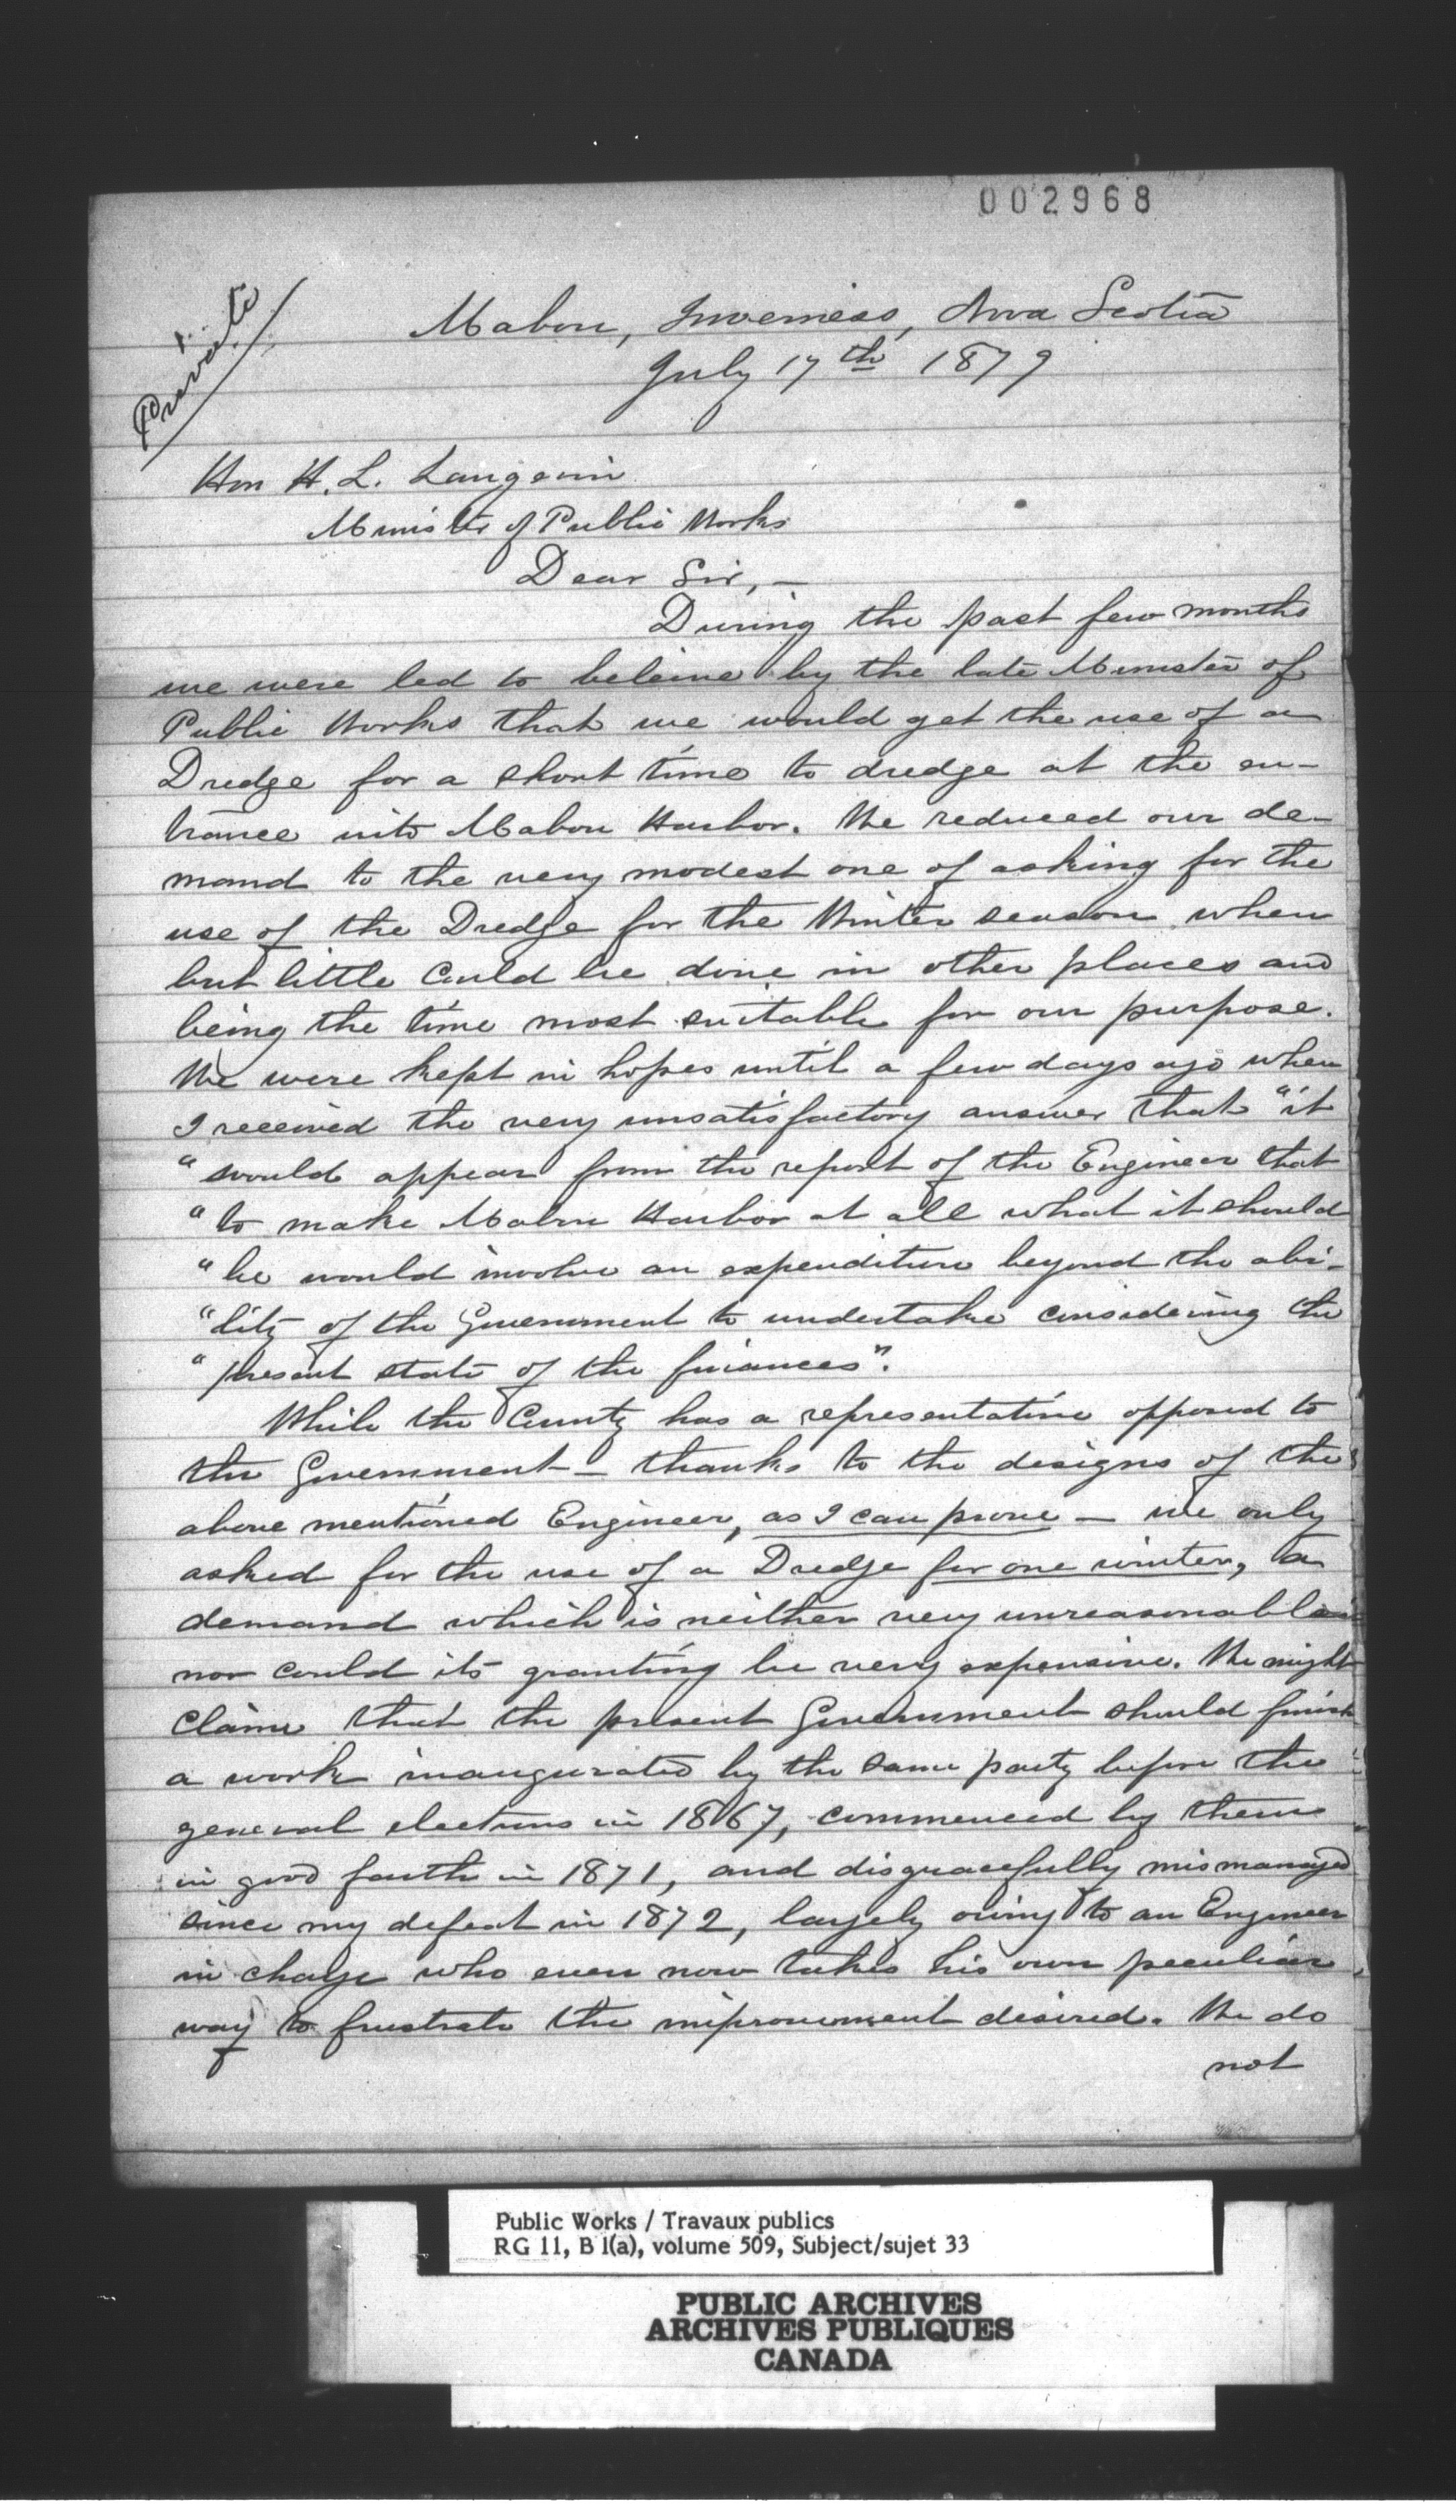 002968
Private
Mabou, Inverness, Nova Scotia
July 17th 1879
Hon H. L. Langevin
Minister of Public Works
Dear Sir,—
During the past few months
we were led to beleive by the late Minister of
Public Works that we would get the use of a
Dredge for a short time to dredge at the en-
trance into Mabou Harbor. We reduced our de-
mand to the very modest one of asking for the
use of the Dredge for the Winter season when
but little could be done in other places and
being the time most suitable for our purpose.
We were kept in hopes until a few days ago when
I received the very unsatisfactory answer that "it
"would appear from the report of the Engineer that
"to make Mabou Harbor at all what it should
"be would involve an expenditure beyond the abi-
"lity of the Government to undertake considering the
"present state of the finances".
While the County has a representative opposed to
the Government — thanks to the designs of the
above mentioned Engineer, as I can prove — we only
asked for the use of a Dredge for one winter, a
demand which is neither very unreasonable
nor could its granting be very expensive. We might
claim that the present Government should finish
a work inaugurated by the same party before the
general elections in 1867, commenced by them
in good faith in 1871, and disgracefully mismanaged
since my defeat in 1872, largely owing to an Engineer
in charge who even now takes his own peculiar
way to frustrate the improvement desired. We do
not
Public Works / Travaux publics
RG 11, B 1(a), volume 509, Subject/sujet 33
PUBLIC ARCHIVES
ARCHIVES PUBLIQUES
CANADA